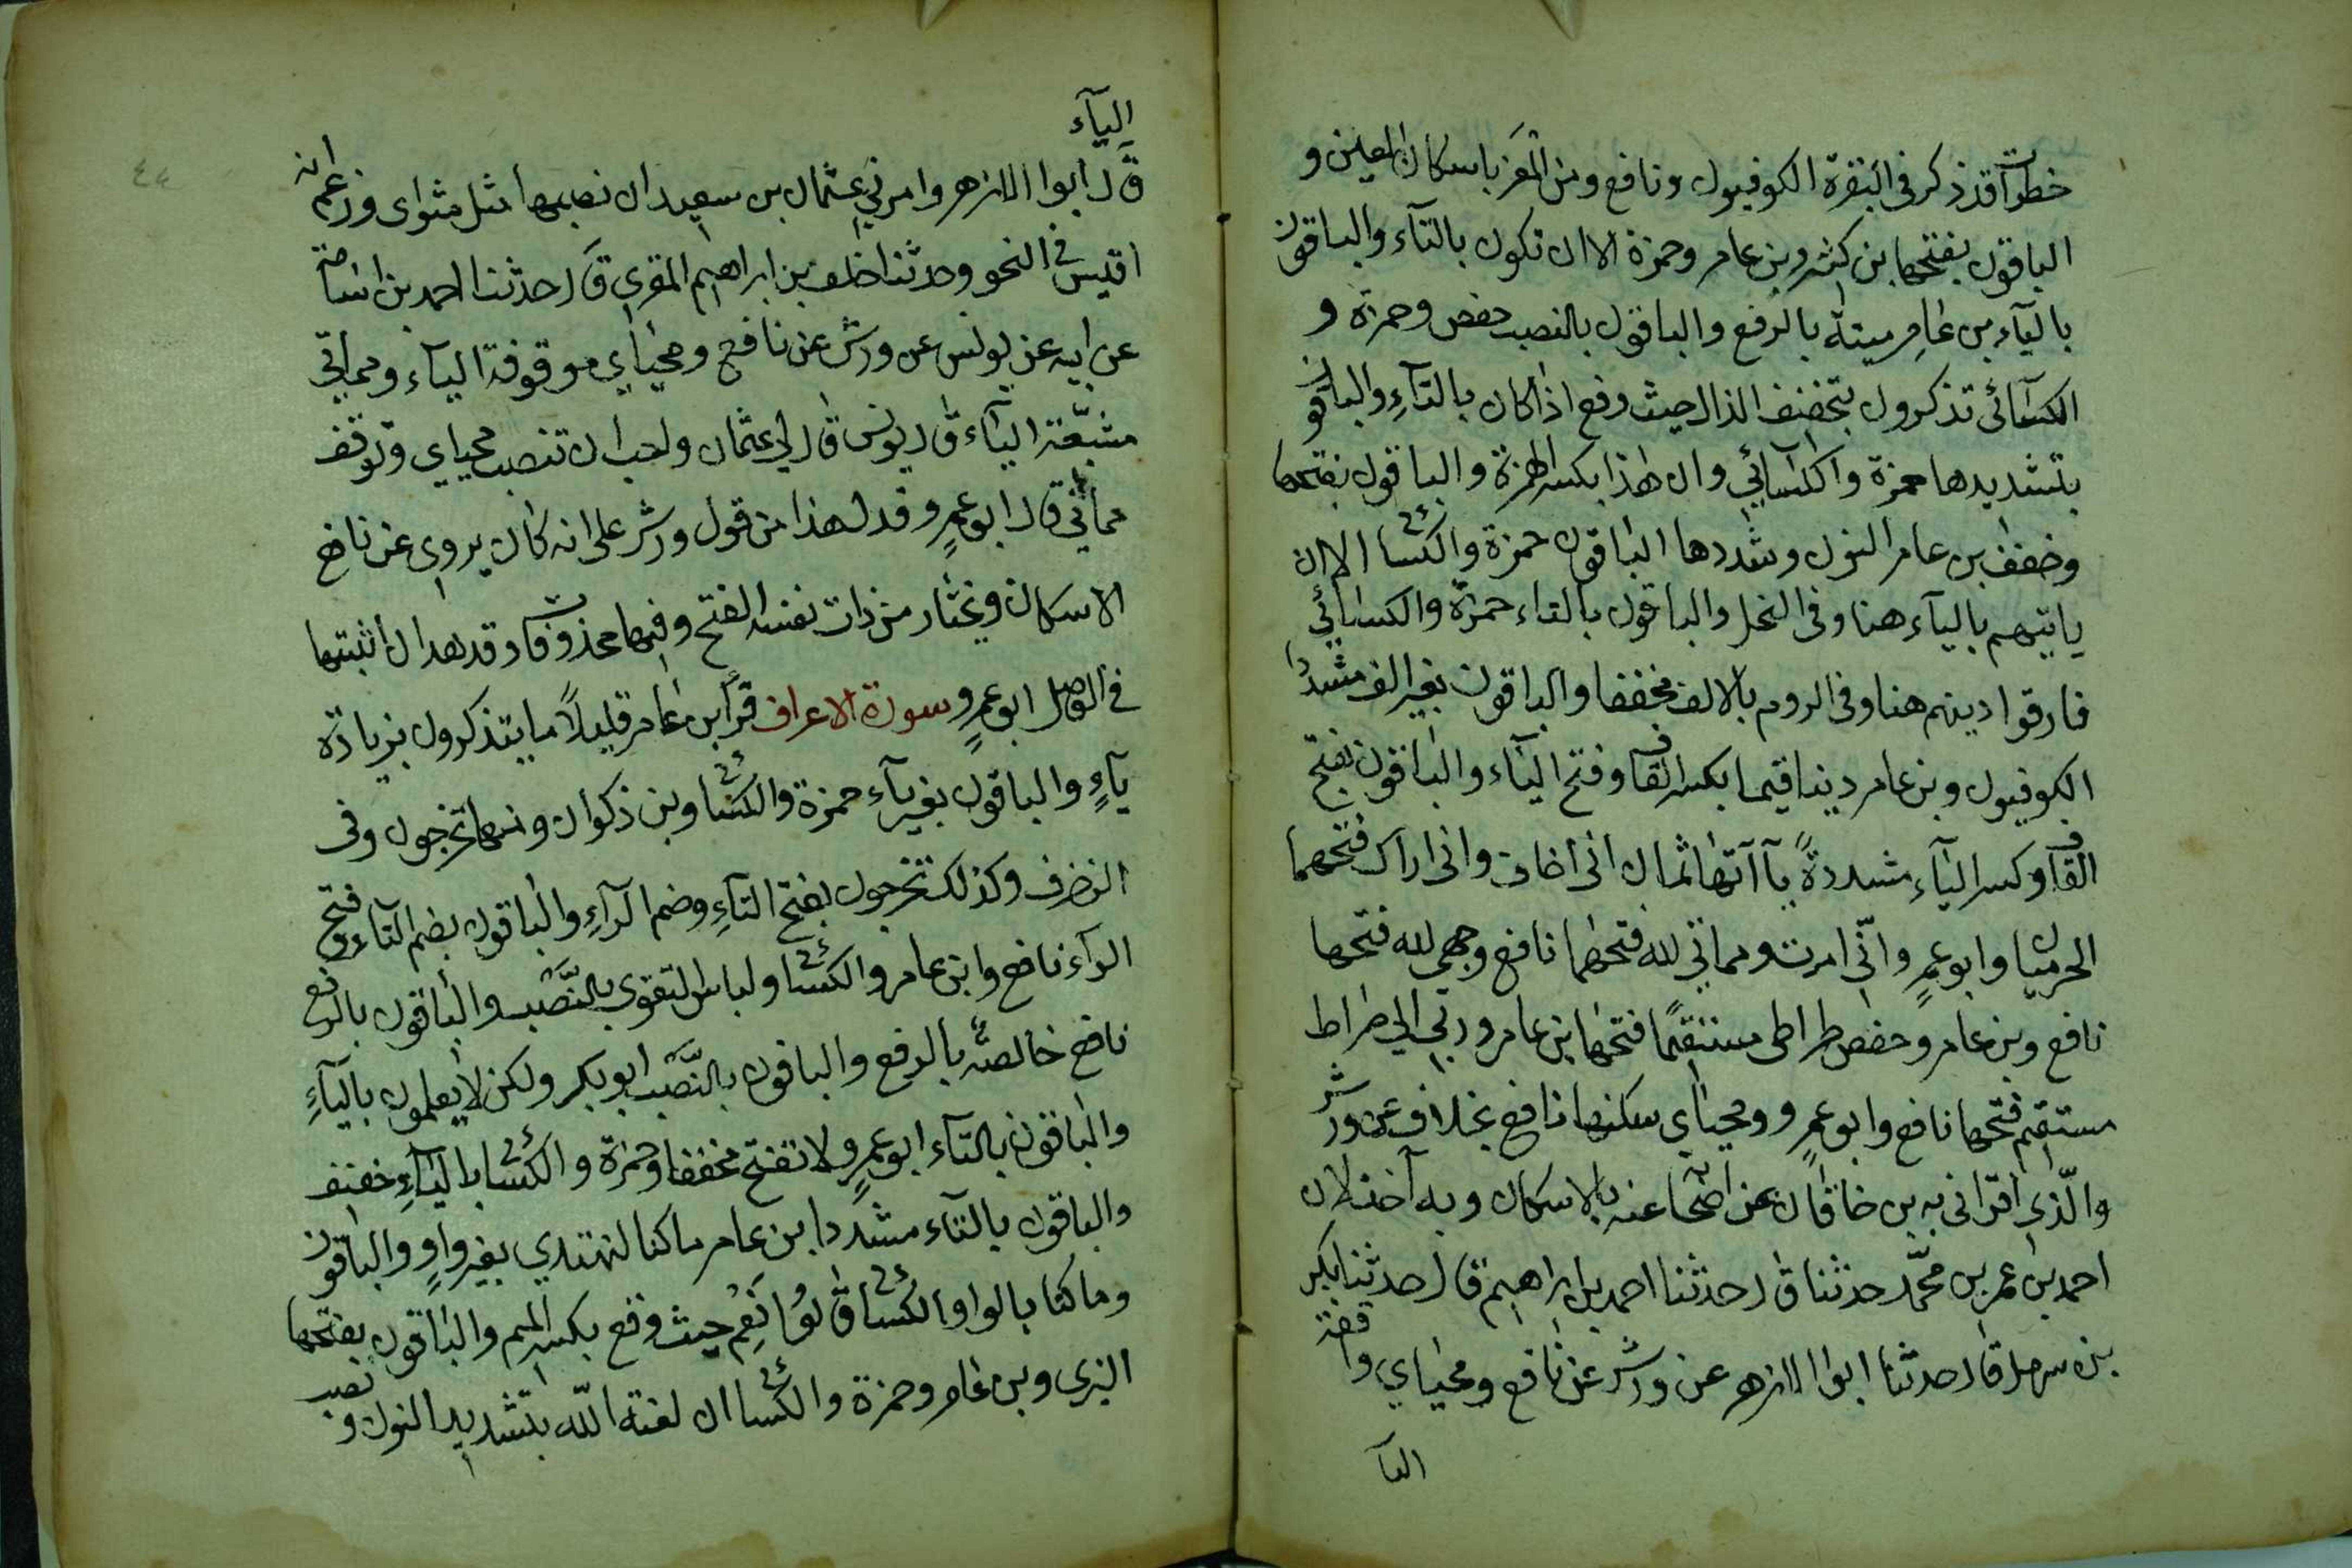 خطوات قد ذكر في البقرة الكوفيون ونافع ومن المعز باسكان العين و
الباقون بفتحها بن كثير وبن عامر وحمزة الا ان تكون بالتآء والباقون
باليآء بن عامر ميتة بالرفع والباقون بالنصب حفص وحمزة و
الكسآئى تذكرون بتخفيف الذال حيث وقع اذا كان بالتآء والباقون
بتشديدها حمزة والكسآئي وان هذا بكسر الهمزة والباقون بفتحها
وخفف بن عامر النون وشددها الباقون حمزة والكسائي الا ان
ياتيهم باليآء هنا وفي النحل والباقون بالتاء حمزة والكسائي
فارقوا دينهم هنا وفى الروم بالالف مخففا والباقون بغير الف مشددا
الكوفيون وبن عامر دينا قيما بكسر القاف وفتح اليآء والباقون بفتح
القاف وكسر اليآء مشددة يآاتها ثمان انى اخاف وانى اراك فتحهما
الحرميان وابو عمرو وانّى امرت ومماتي لله فتحهما نافع وجهى لله فتحها
نافع وبن عامر وحفص صراطى مستقيما فتحها بن عامر وربّي الى صراط
مستقيم فتحها نافع وابو عمرو ومحياي سكنها نافع بخلاف عن ورش
والّذي اقرانى به بن خاقان عن اصحابه عنه بالاسكان وبه آخذ لان
احمد بن عمر بن محمّد حدثنا قال حدثنا احمد بن ابراهيم قال حدثنا بكر
بن سهل قال حدثنا ابوا الازهر عن ورش عن نافع ومحياي واقفة
اليآ
اليآء
قال ابوا الازهر وامرني عثمان بن سعيد ان نصبها مثل مثواى وزعم انه
اقيس في النحو وحدثنا خلف بن ابراهيم المقري قال حدثنا احمد بن اسامة
عن ابيه عن يونس عن ورش عن نافع ومحياي موقوفة اليآء ومماتي
منتصبة اليآء قال يونس قال لي عثمان واحب ان تنصب محياي وتوقف
مماتي قال ابو عمرو فدل هذا من قول ورش على انه كان يروى عن نافع
الاسكان ويختار من ذات نفسه الفتح وفيها محذوفة وقد هدان اثبتها
في الوصل ابو عمرو سورة الاعراف قرأ ابن عامر قليلاً ما يتذكرون بزيادة
يآء والباقون بغير يآء حمزة والكسائي وبن ذكوان ومنها تخرجون وفى
الزخرف وكذلك تخرجون بفتح التآء وضم الرآء والباقون بضم التآء وفتح
الرآء نافع وابن عامر والكسائي ولباس التقوى بالنّصب والباقون بالرفع
نافع خالصة بالرفع والباقون بالنّصب ابو بكر ولكن لا يعلمون باليآء
والباقون بالتآء ابو عمرو لا تفتح مخففا وحمزة والكسائي باليآء خفيف
والباقون بالتآء مشددا ابن عامر ما كنا لنهتدي بغير واو والباقون
وما كنا بالواو الكسائي قالوا نعم حيث وقع بكسر العين والباقون بفتحها
البزى وبن عامر وحمزة والكسائي ان لعنة اللّه بتشديد النون ونصب